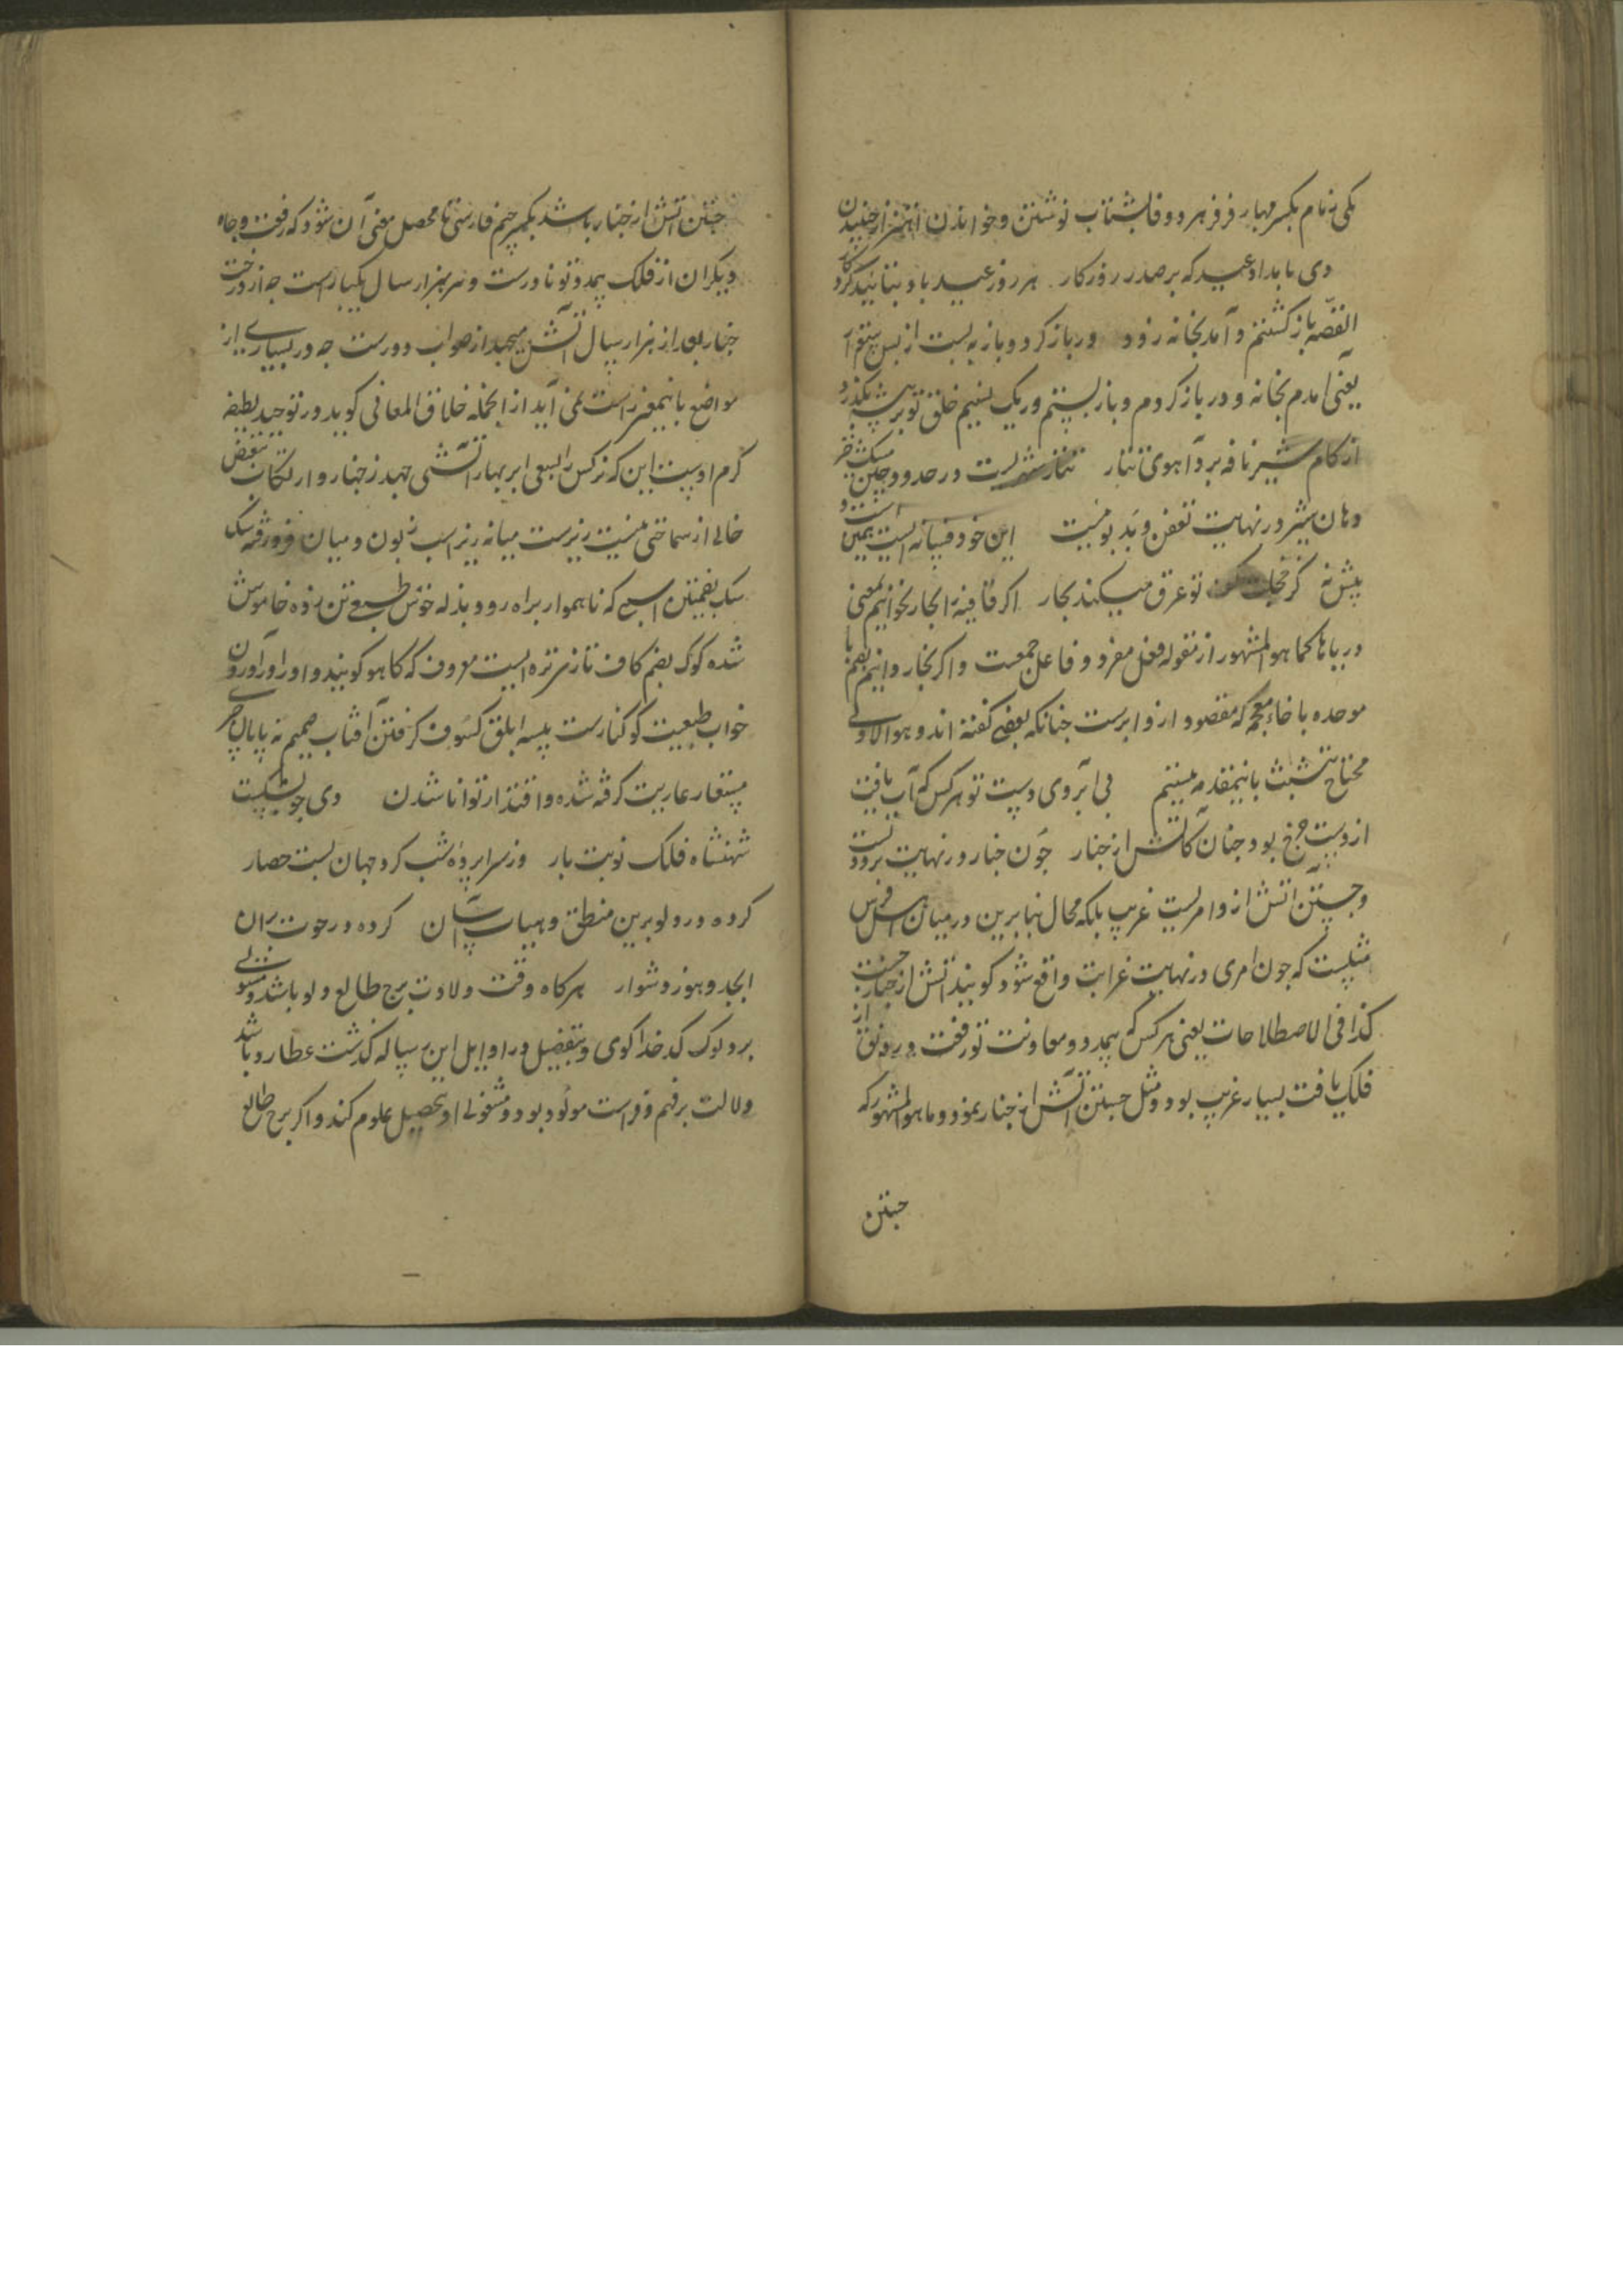 یکی نه نام بکسر مهار فر فر هر دو فا بشتاب نوشتن و خواندن اهتزاز جنبیدن
دی بامداد عید که بر صدر روزکار هر روز عید باد بتائید کردکار
القصه باز کشتم و آمد بخانه زود در باز کرد و باز به بست از پس ستوار
یعنی امدم بخانه و در باز کردم و باز بستم و ریک نسیم خلق تو بر بیشه بکذرد
از کام شیر نافه برد آهوی تتار تتار شهریست در حدود چین مشک خیز
دهان شیر در نهایت تعفن و بد بوئیست این خود فسانه ایست همین است و
پیش نه کز خجلت تو عرق میکند بحار اکر قافیه بحار بخوانیم بمعنی
دریاها کما هو المشهور از مقوله فعل مفرد و فاعل جمعست و اکر بخار دانیم بضم با
موحده با خاء معجمه که مقصود ازو ابرست چنانکه بعضی کفته اند و هو الاولی
محتاج تشبث باینمقدمه نیستیم بی آبروی دست تو هر کس که آب یافت
از دست چرخ بود چنان کاتش از چنار چون چنار در نهایت برودتست
و جستن آتش ازو امریست غریب بلکه محال بنابرین در میان اهل فرس
مثلیست که چون امری در نهایت غرابت واقع شود کویند آتش از چنار جست
کذا فی الاصطلاحات یعنی هر کس که بیمدد و معاونت تو رفعت و رونق از
فلک یافت بسیار غریب بود و مثل جستن آتش از چنار نمود و ما هو المشهور که
جستن
جستن آتش از چنار باشد بکسر چیم فارسی تا محصل معنی آن شود که رفعت و جاه
دیکران از فلک بیمدد تو نادرست و در هزار سال یکبارست چه از درخت
چنار بعد از هزار سال آتش میجهد از صواب دورست چه در بسیاری از
مواضع باینمعنی راست نمی آید از انجمله خلاق المعانی کوید در توحید لطیفه
کرم اوست این که نرکس را بسعی ابر بهار آتشی جهد ز چنار و ارتکاب تبعیض
خالی از سماحتی نیست زیرست میانه ریز اسب زبون و میان فرو رفته سک
سک بفتحتین اسبی که ناهموار براه رود بذله خوش طبعی تن زده خاموش
شده کوک بضم کاف تازی تره ایست معروف که کاهو کویند و او را در آوردن
خواب طبیعیت کوکنارست پیسه ابلق کسوف کرفتن آفتاب صمیم ته پایان چیزی
مستعار عاریت کرفته شده و اقتدار توانا شدن دی چون شکست
شهنشاه فلک نوبت بار وز سراپرده شب کرد جهان بست حصار
کرده در دلو برین منطق و هیات آسان کرده در حوت بران
ابجد و هوز دشوار هر کاه وقت ولادت برج طالع دلو باشد و مستولی
برو لوک کدخدا کوی و بتفصیل در اوایل این رساله کذشت عطارد باشد
دلالت بر فهم و فراست مولود بود و مشغولی او بتحصیل علوم کند و اکر برج طالع